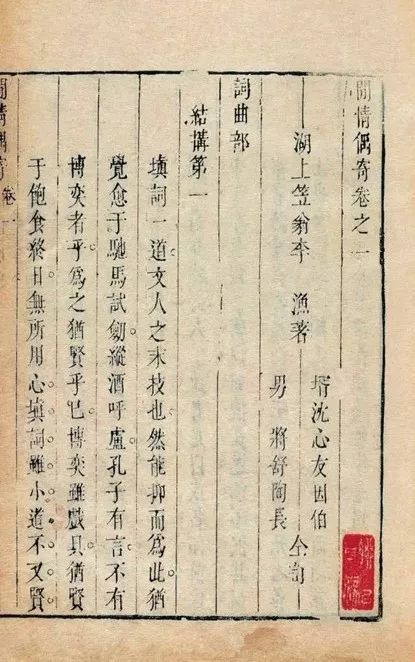 閒情偶寄卷之一
湖上笠翁李 漁著
壻沈心友因伯
男 將舒陶長
仝訂
詞曲部
結搆第一
填詞一道文人之末技也然能抑而爲此猶
覺愈于馳馬試劒縱酒呼盧孔子有言不有
博奕者乎爲之猶賢乎已博奕雖戲具猶賢
于飽食終日無所用心填詞雖小道不又賢
閒情偶寄 卷一